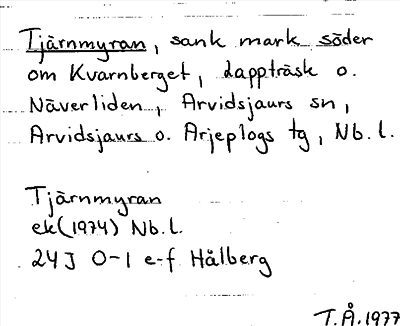 Tjärnmyran, sank mark söder
om Kvarnberget, Lappträsk o.
Näverliden, Arvidsjaurs sn,
Arvidsjaurs o. Arjeplogs tg, Nb.l.
Tjärnmyran
ek(1974) Nb.l.
24J 0-1 e-f Hålberg
T.Å.1977